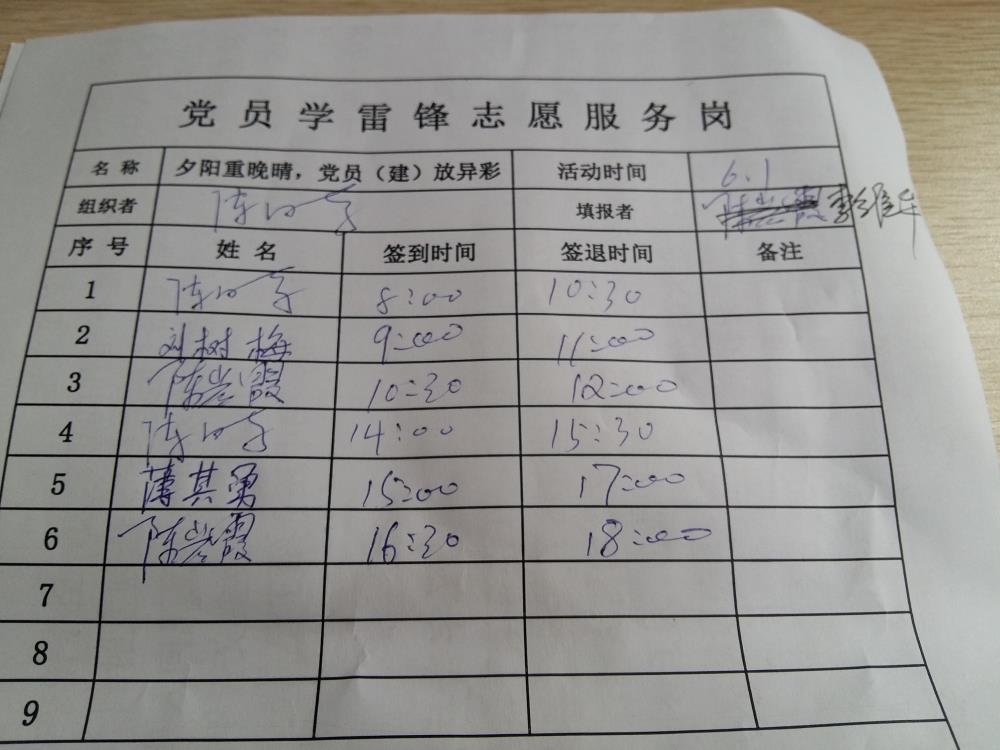 党员学雷锋志愿服务岗
名称 夕阳重晚晴，党员（建）放异彩 活动时间 6.1
组织者 填报者
序号 姓名 签到时间 签退时间 备注
1 8:00 10:30
2 刘树梅 9:00 11:00
3 10:30 12:00
4 14:00 15:30
5 薄其勇 15:00 17:00
6 16:30 18:00
7
8
9